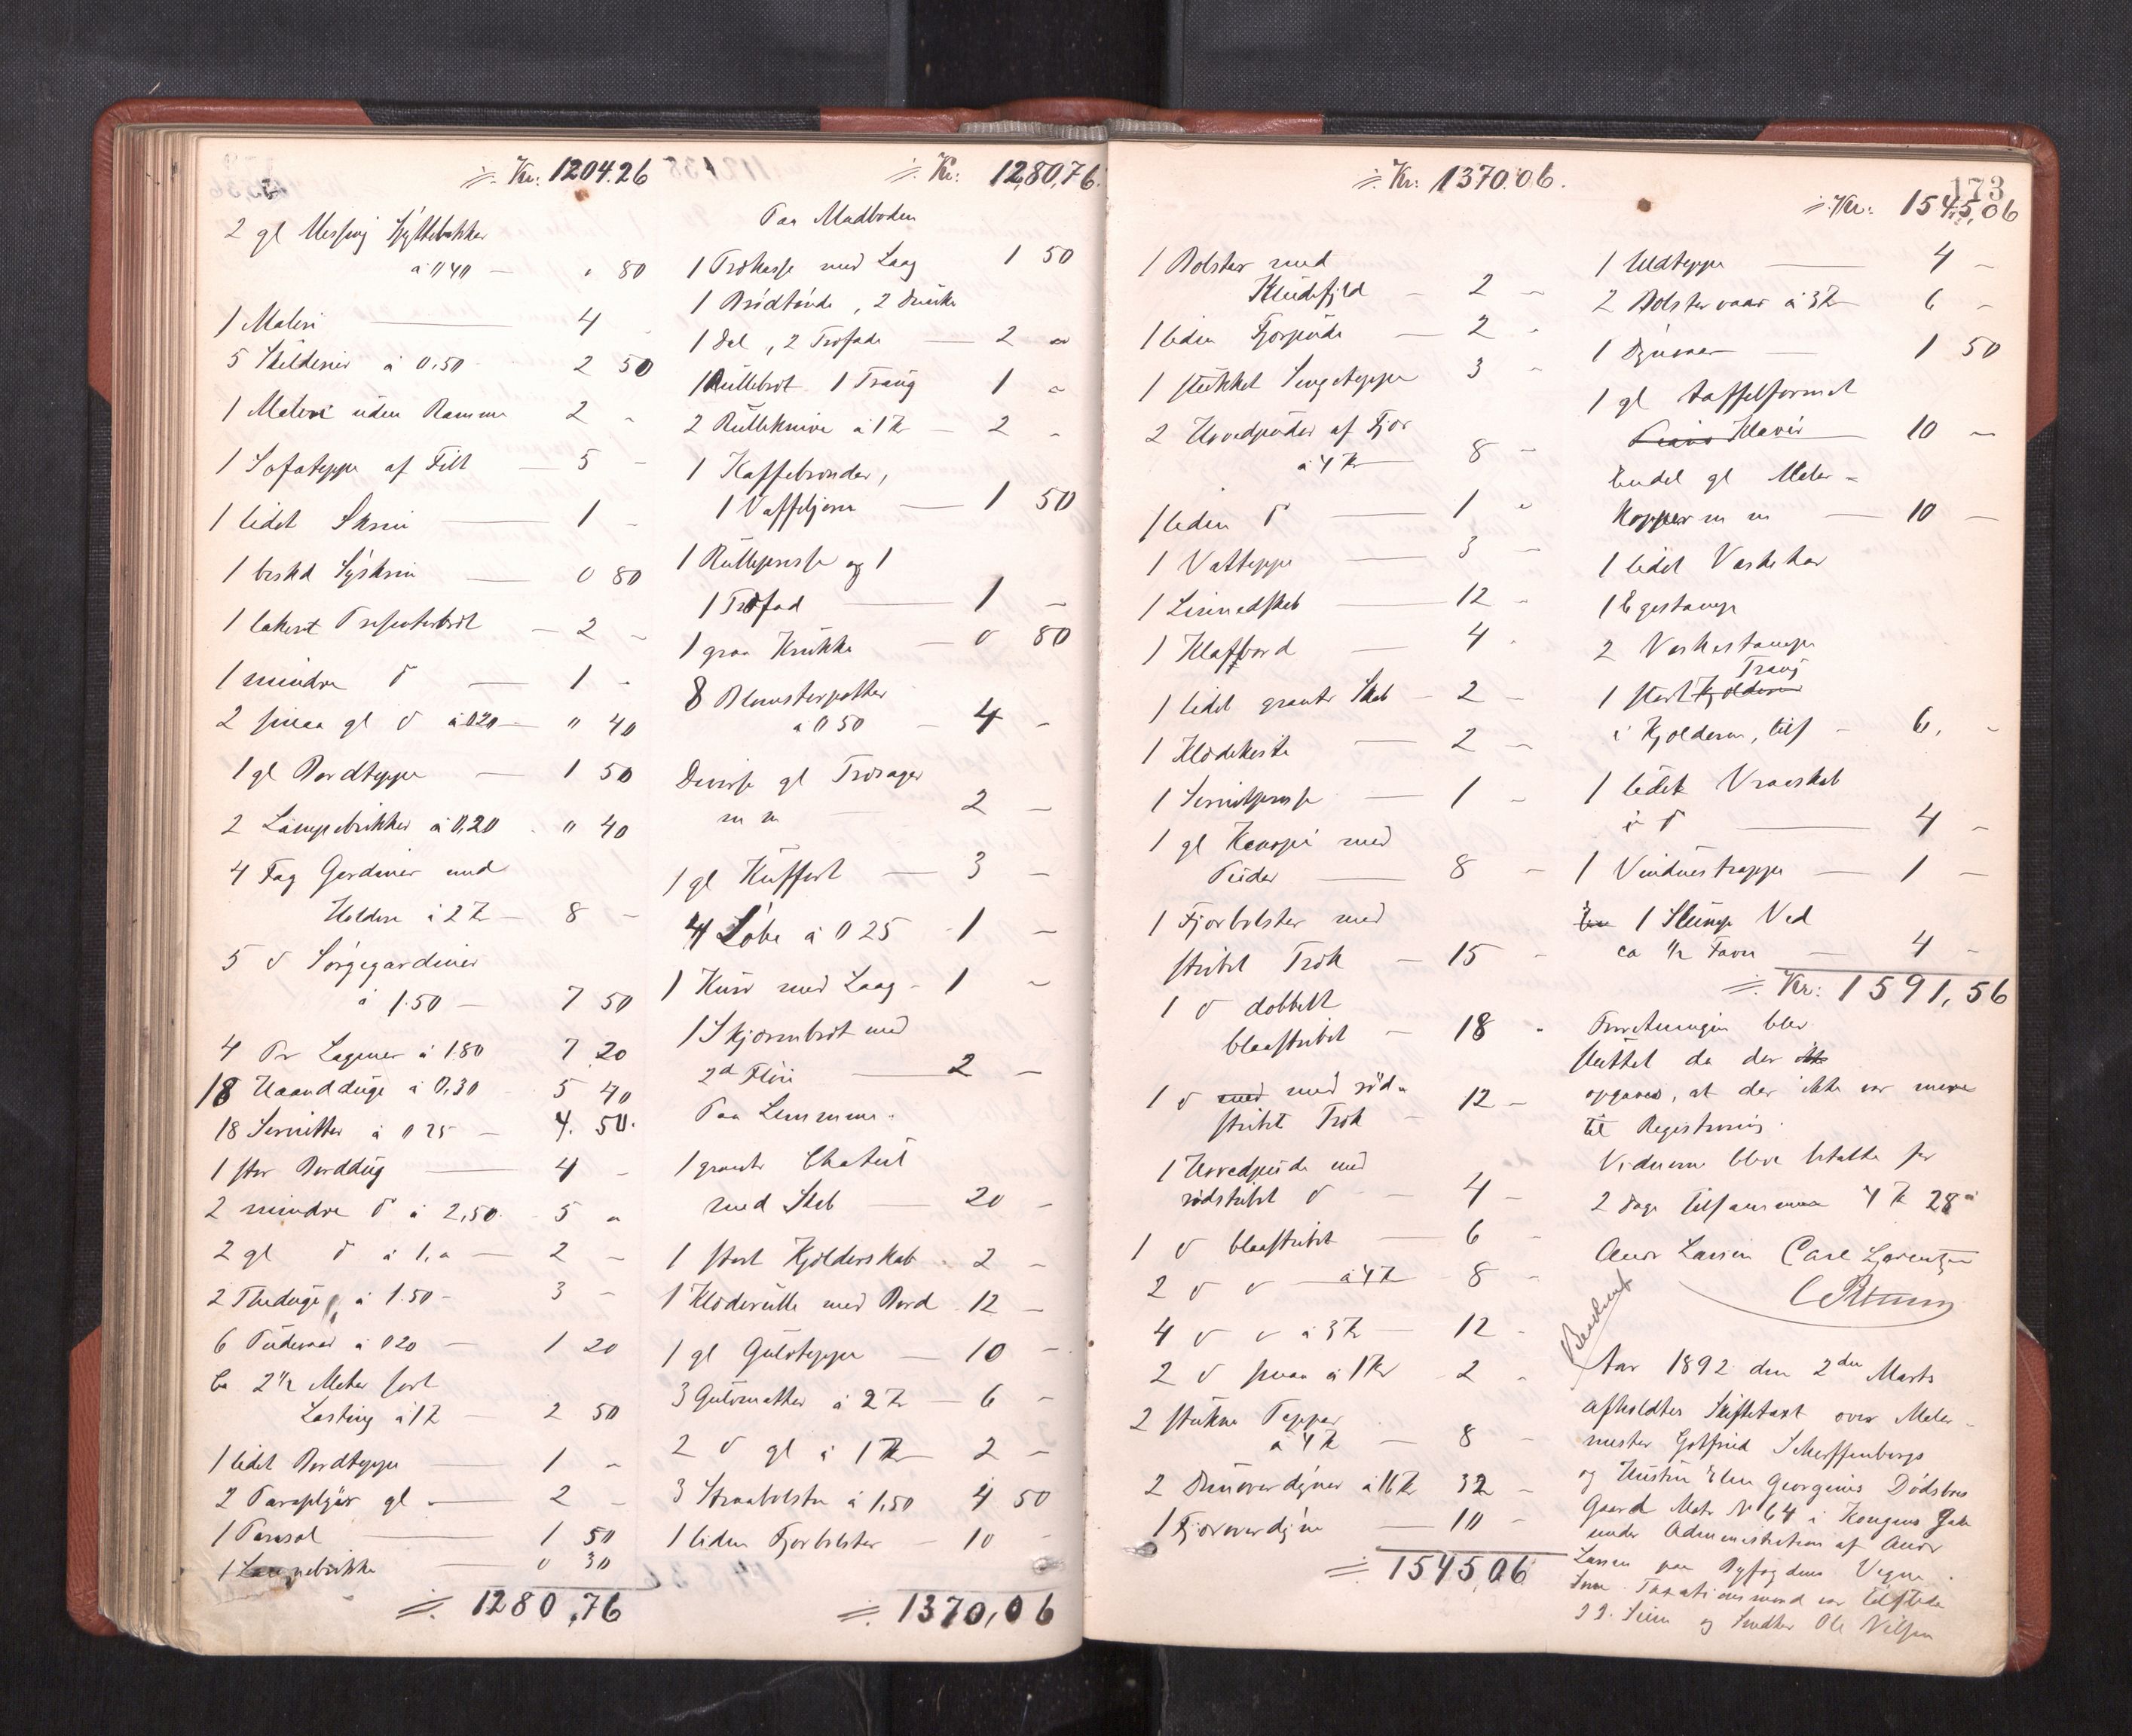 ÷ Kr: 1204.26
2 gl Messing
à 0 40 — " 80
1 Maleri — 4 -
5 Skilderier à 0.50 2 50
1 Maleri uden Ramme 2 -
1 Sofateppe af Filt — 5 -
1 lidet Skrin — 1 -
1 Syskrin — 0 80
1 lakeret Presenterbret — 2 -
1 mindre d — 1 -
2 smaa gl d à 020 — " 40
1 gl Bordteppe — 1 50
2 Lampebrikker à 0,20 - " 40
4 Fag Gardiner med
Holdere à 2 Kr — 8 -
5 d Sørgegardiner
à 1.50 — 7 50
4 Pr Lagener à 1.80 7 20
18 Haandduge à 0,30 - 5 40
18 Servietter à 0 25 — 4. 50.
1 stor Borddug — 4 -
2 mindre d à 2,50 - 5 "
2 gl d à 1." — 2 -
2 Theduge à 1.50 - 3 -
6 Pudevar à 0 20 — 1 20
Ca 2 1/2 Meter sort
Lasting à 1 Kr — 2 50
1 lidet Bordteppe — 1 -
2 Paraplyer gl - 2 -
1 Parasol — 1 50
1 — 0 30
÷ 1280,76
÷ Kr: 1280,76.
Paa Madboden
1 Trækasse med Laag 1 50
1 Brødtønde, 2 Dunke
1 Dal, 2 Træfade — 2 "
1 Rullebret 1 Traug 1 -
2 Rulleknive à 1 Kr — 2 -
1 Kaffebrænder,
1 Vaffeljern — 1 50
1 Rullepresse og 1
1 Træfad — 1 -
1 graa Krukke — 0 80
8 Blomsterpotter
à 0 50 — 4 -
Diverse gl Træsager
m m — 2 -
1 gl Kuffert — 3 -
4 Løbe à 0 25 - 1 -
1 Kurv med Laag - 1 -
1 Skjærmbret med
2d — 2 -
Paa Lemmene.
1 Chatul
med Skab — 20 -
1 stort Kjølderskab - 2 -
1 Klæderulle med Bord - 12 -
1 gl Gulvteppe — 10 -
3 Gulvmatter à 2 Kr — 6 -
2 d gl à 1 Kr — 2 -
3 Straabolster à 1,50 4 50
1 liden Fjærbolster — 10 -
÷ 1370,06
÷ Kr: 1370.06.
1 Bolster med
Kludefyld — 2 -
1 liden Fjærpude — 2 -
1 stukket Sengeteppe 3 -
2 Hovedpuder af Fjær
à 4 Kr — 8 -
1 liden d — 1 "
1 Vatteppe — 3 -
1 Linnedskab — 12 -
1 Klafbord — 4 -
1 lidet Skab - 2 -
1 Klædekiste — 2 -
1 Servietpresse — 1 -
1 gl Kanape med
Puder — 8 -
1 Fjærbolster med
stribet Træk — 15 -
1 d dobbelt
blaastribet — 18 -
1 d med med rød-
stribet Træk — 12 -
1 Hovedpude med
rødstribet d — 4 -
1 d blaastribet — 6 -
2 d d — à 4 Kr 8 -
4 d d à 3 Kr — 12 -
2 d smaa à 1 Kr - 2 -
2 stukne Tepper
à 4 Kr — 8 -
2 Dunoverdyner à 16 Kr 32 -
1 Fjæroverdyne — 10 -
÷ 1545,06
173
÷ Kr: 1545,06
1 Uldteppe — 4 -
2 Bolstervaar à 3 Kr — 6 -
1 Dynevaar — 1 50
1 gl taffelformet
Piano Klaver — 10 -
Endel gl Maler-
m m — 10 -
1 lidet Vaskekar
1 Egestampe
2 Vaskestampe
Traug
1 stort Kjølderen
i Kjølderen, tils - 6, -
1 lidet Vraaskab
i d — 4 -
1 Vinduestrappe — 1 -
1 Slump Ved
ca 1/2 Favn — 4 -
÷ Kr: 1591,56
Forretningen blev
sluttet da der ikke
opgaves, at der ikke var mere
til Registrering.
Vidnerne bleve betalte for
2 Dage tilsammen 4 Kr 28
Andr Larsen Carl Lorentzen
Aar 1892 den 2den Marts
afholdtes Skiftetaxt over Maler-
mester Gotfried Scherffenbergs
og Hustru Elen Georgines Dødsbos
Gaard Matr No 64 i Kongens Gade
under Administration af Andr
Larsen paa Byfogdens Vegne.
Som Taxationsmænd var tilstede
og Snedker Ole Nilsen